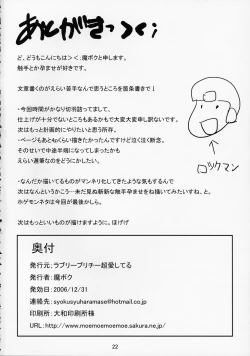 あとがきっ><;
ど、どうもこんにちは><;魔ボクと申します。
触手とか孕ませが好きです。
文章書くのがえらい苦手なんで思うところを箇条書きで↓
・今回時間がかなり切羽詰ってまして、
仕上げが十分でないところもあるかもで大変大変申し訳ないです。
次はもっと計画的にやりたいと思う所存。
・ページも あと4pくらい描きたかったんですけど泣く泣く断念。
そのせいで中途半端になってしまったかも
えらい遅筆なのをどうにかしたい。
・なんだか描いてるものがマンネリ化してきたような気もするんで
次はなんというかこう…未だ見ぬ斬新な触手孕ませをね描いてみたいですね、と。
ホゲモンネタは今回が最後かしら。
次はもっといいものが描けますように。ほげげ
ロックマン
奥付
発行元：ラブリープリチー超愛してる
発行者：魔ボク
発効日：2006/12/31
連絡先：syokusyuharamase@hotmail.co.jp
印刷所：大和印刷所様
URL：http://www.moemoemoemoe.sakura.ne.jp/
22